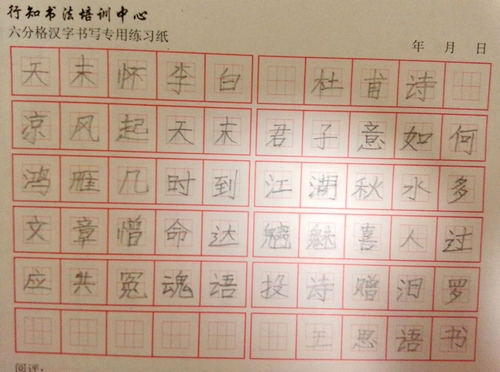 行知书法培训中心
六分格汉字书写专用练习纸
年 月 日
天末怀李白 杜甫诗
凉风起天末 君子意如何
鸿雁几时到 江湖秋水多
文章憎命达 魑魅喜人过
应共冤魂语 投诗赠汨罗
王思语书
回评: